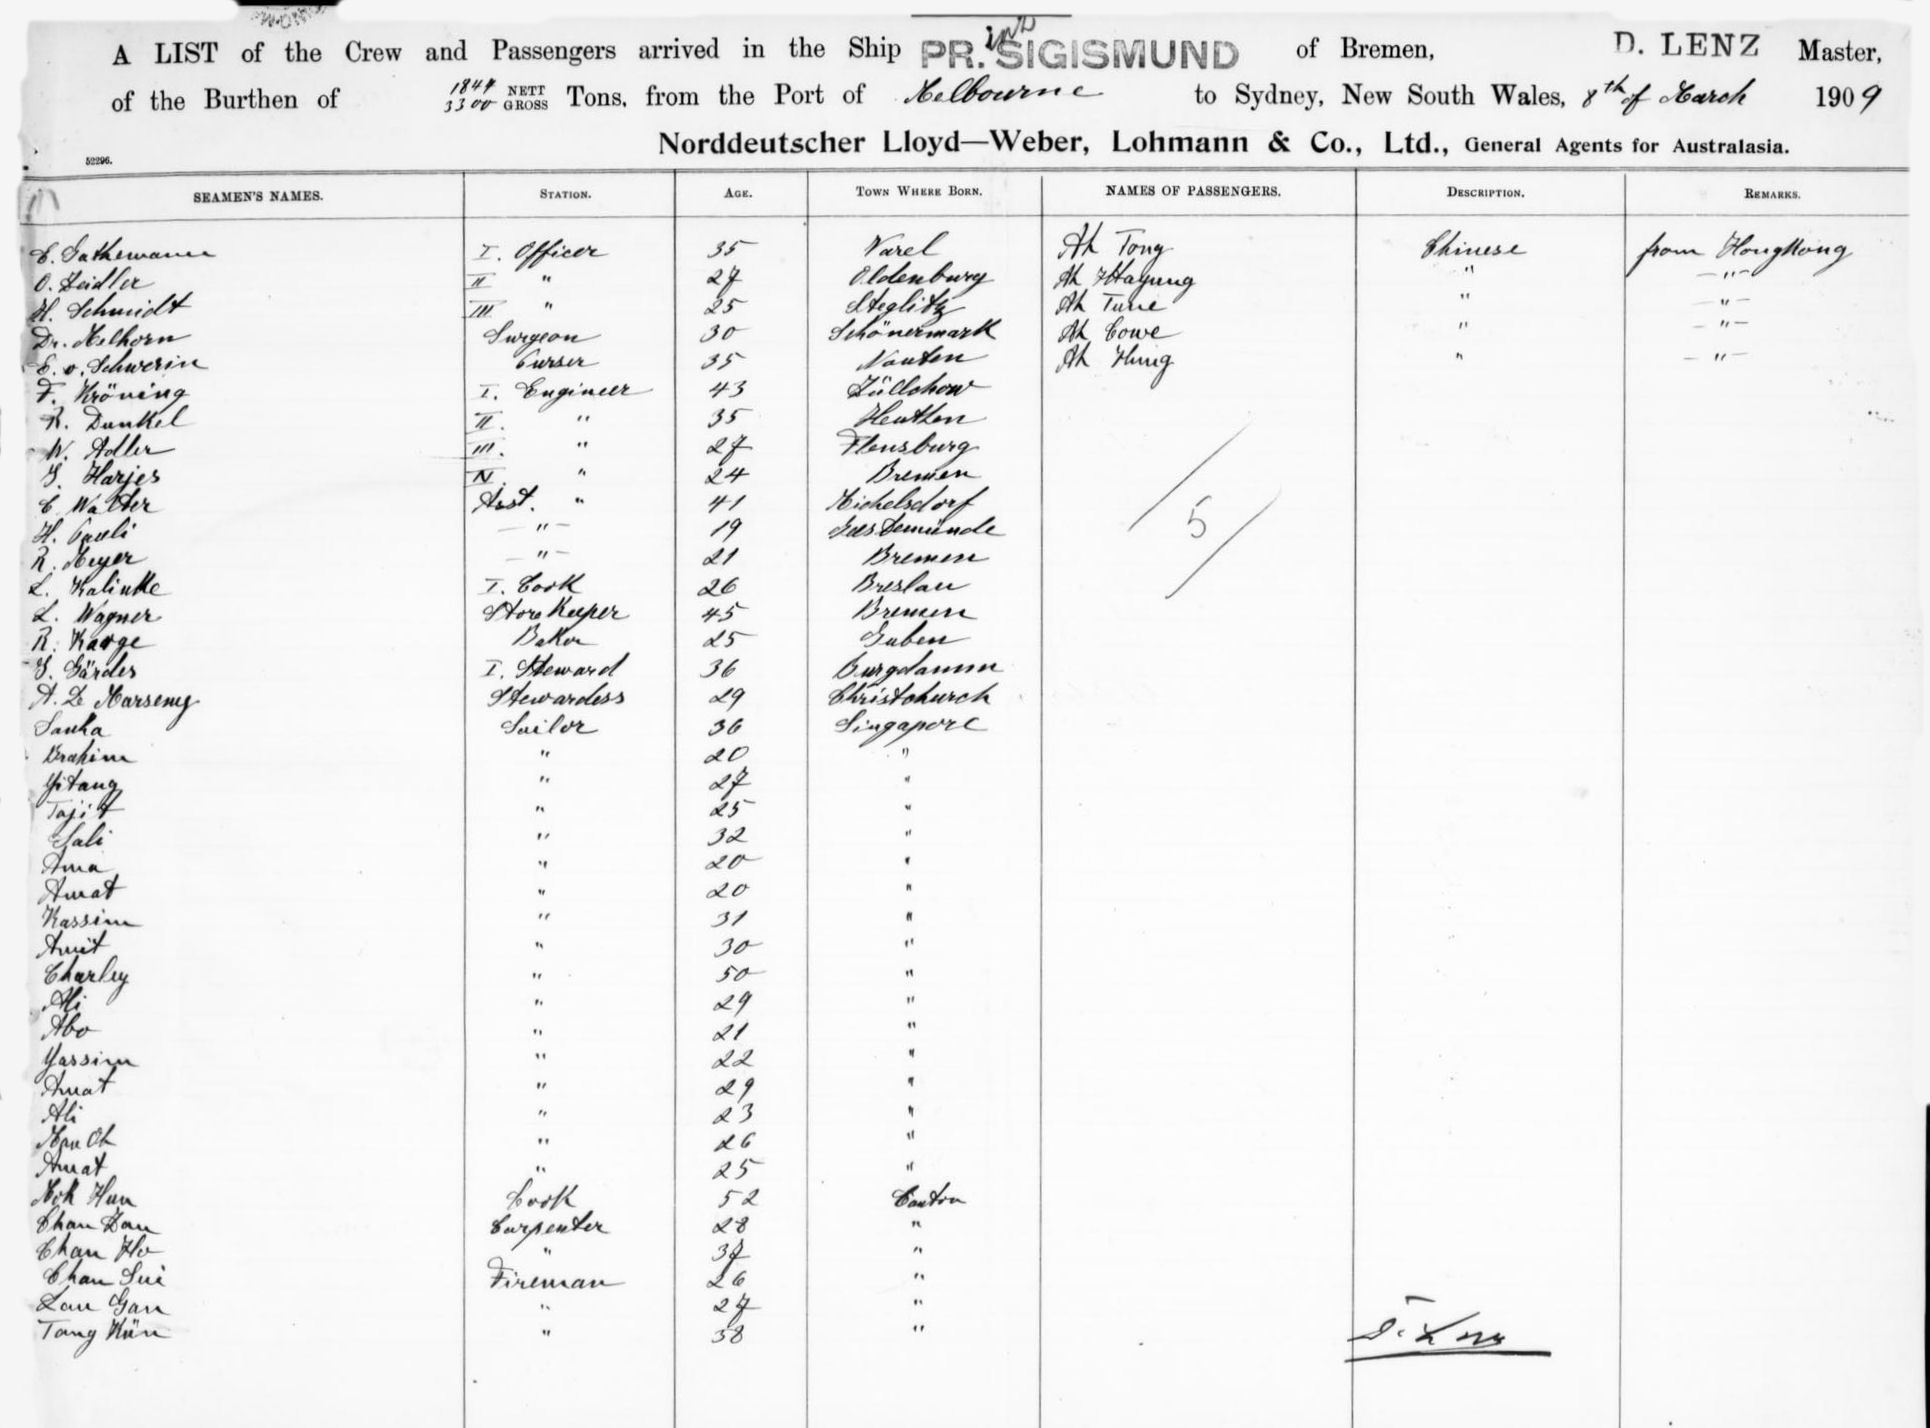 A LIST of the Crew and Passengers arrived in the Ship PR. SIGISMUND of Bremen, D. LENZ Master,
of the Burthen of 1844 NETT 3300 GROSS Tons, from the Port of Melbourne to Sydney, New South Wales, 8th of March 1909
Norddeutscher Lloyd—Weber, Lohmann & Co., Ltd., General Agents for Australasia.
52296.
SEAMEN'S NAMES. STATION. AGE. TOWN WHERE BORN. NAMES OF PASSENGERS. DESCRIPTION. REMARKS.
C. Gathemann I. Officer 35 Varel Ah Tong Chinese from HongKong
O. Zeidler II " 27 Oldenburg Ah " -"-
H. Schmidt III " 25 Steglitz Ah Tune " -"-
Dr. Melhorn Surgeon 30 Schönermark Ah Cowe " -"-
E. v. Schwerin Purser 35 Nauten Ah Hung " -"-
F. Kröning I. Engineer 43 Züllchow
R. Dunkel II. " 35 Heuthen
W. Adler III. " 27 Flensburg
J. Harjes IV. " 24 Bremen
C. Walter Asst. " 41 Michelsdorf
H. Pauli -"- 19 Geestemünde
R. Meyer -"- 21 Bremen
L. Kalinke I. Cook 26 Breslau
L. Wagner StoreKeeper 45 Bremen
R. Karge Baker 25 Guben
J. Gärdes I. Steward 36 Burgdamm
A. Le Marseny Stewardess 29 Christchurch
Sanka Sailor 36 Singapore
Brahim " 20 "
Yitang " 27 "
Tajit " 25 "
Sali " 32 "
Ama " 20 "
Amat " 20 "
Kassim " 31 "
Amit " 30 "
Charley " 50 "
Ali " 29 "
Abo " 21 "
Yassim " 22 "
Amat " 29 "
Ali " 23 "
Man Oh " 26 "
Amat " 25 "
Mok Hun Cook 52 Canton
Chan Zan Carpenter 28 "
Chan Ho " 37 "
Chan Sui Fireman 26 "
Lau Gan " 27 "
Tang Kün " 38 "
5
D. Lenz